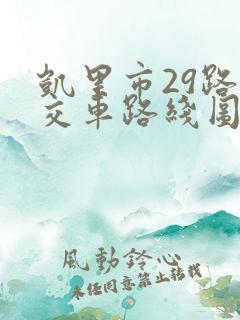 凱里市29路
交車路綫圖
風動鈴心
未经同意禁止转载